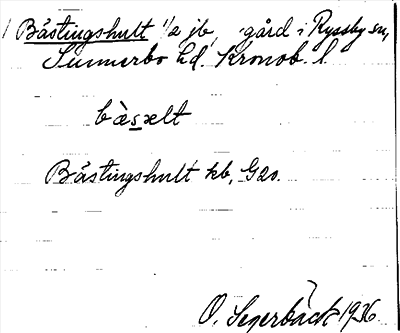 Båstingshult 1/2 jb, gård i Ryssby sn,
Sunnerbo hd. Kronob. l.
bàsxelt
Båstingshult kb, G20.
O. Segerbäck 1936